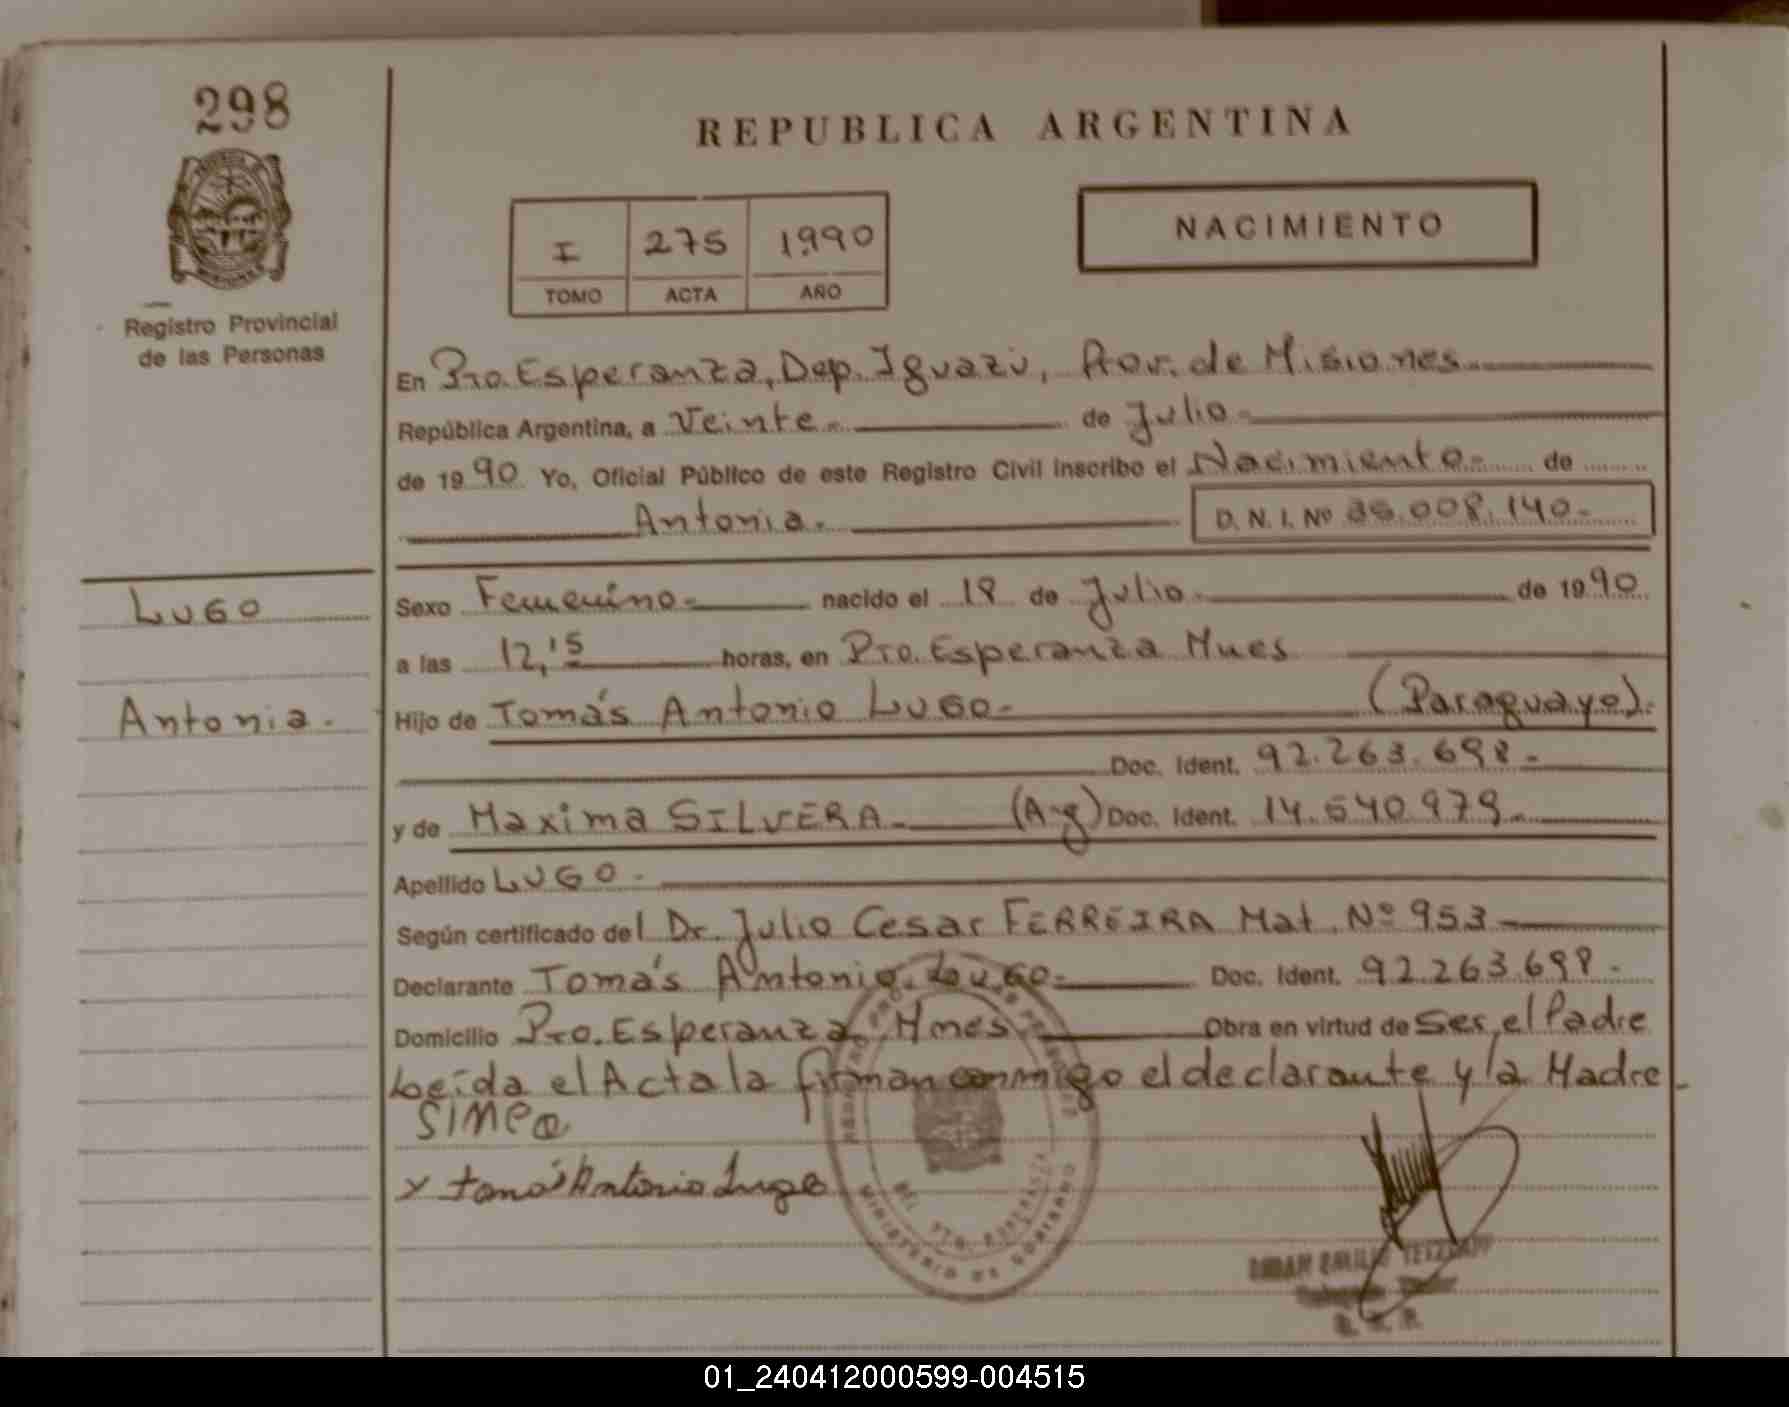 298
REPUBLICA ARGENTINA
NACIMIENTO
I 275 1990
TOMO ACTA AÑO
Registro Provincial
de las Personas
En Pto. Esperanza, Dep. Iguazú, Prov. de Misiones
República Argentina, a Veinte.- de Julio.-
de 1990 Yo, Oficial Público de este Registro Civil inscribo el Nacimiento.- de
Antonia. D. N. I. Nº 35.008.140.-
LUGO
Antonia.-
Sexo Femenino.- nacido el 18 de Julio de 1990
a las 12,15 horas, en Pto. Esperanza Mnes
Hijo de Tomás Antonio LUGO.- (Paraguayo).-
Doc. Ident. 92.263.698.-
y de Maxima SILVERA.- (Arg) Doc. Ident. 14.540.979.-
Apellido LUGO.-
Según certificado del Dr. Julio Cesar FERREIRA Mat. Nº 953
Declarante Tomás Antonio LUGO.- Doc. Ident. 92.263.698.-
Domicilio Pto. Esperanza Mnes Obra en virtud de ser el Padre
Leída el Acta la firman conmigo el declarante y la Madre
x tomás Antonio Lugo
MINISTERIO DE GOBIERNO
PTO. ESPERANZA
01_240412000599-004515